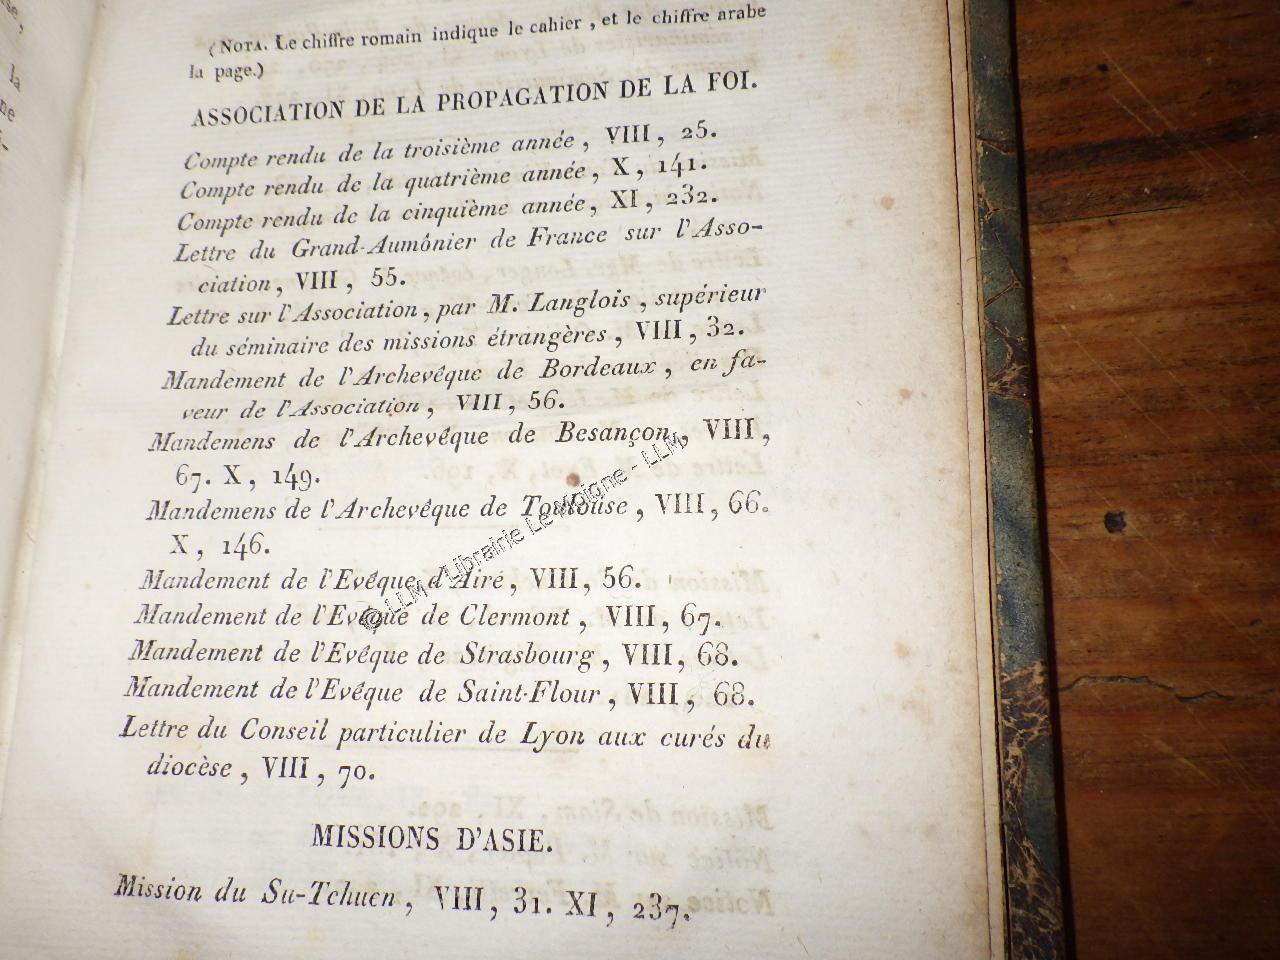 (NOTA. Le chiffre romain indique le cahier, et le chiffre arabe
la page.)
ASSOCIATION DE LA PROPAGATION DE LA FOI.
Compte rendu de la troisième année, VIII, 25.
Compte rendu de la quatrième année, X, 141.
Compte rendu de la cinquième année, XI, 232.
Lettre du Grand-Aumônier de France sur l'Asso-
ciation, VIII, 55.
Lettre sur l'Association, par M. Langlois, supérieur
du séminaire des missions étrangères, VIII, 32.
Mandement de l'Archevêque de Bordeaux, en fa-
veur de l'Association, VIII, 56.
Mandemens de l'Archevêque de Besançon, VIII,
67. X, 149.
Mandemens de l'Archevêque de Toulouse, VIII, 66.
X, 146.
Mandement de l'Evêque d'Aire, VIII, 56.
Mandement de l'Evêque de Clermont, VIII, 67.
Mandement de l'Evêque de Strasbourg, VIII, 68.
Mandement de l'Evêque de Saint-Flour, VIII, 68.
Lettre du Conseil particulier de Lyon aux curés du
diocèse, VIII, 70.
MISSIONS D'ASIE.
Mission du Su-Tchuen, VIII, 31. XI, 237.
© LLM - Librairie Le Moigne - LLM